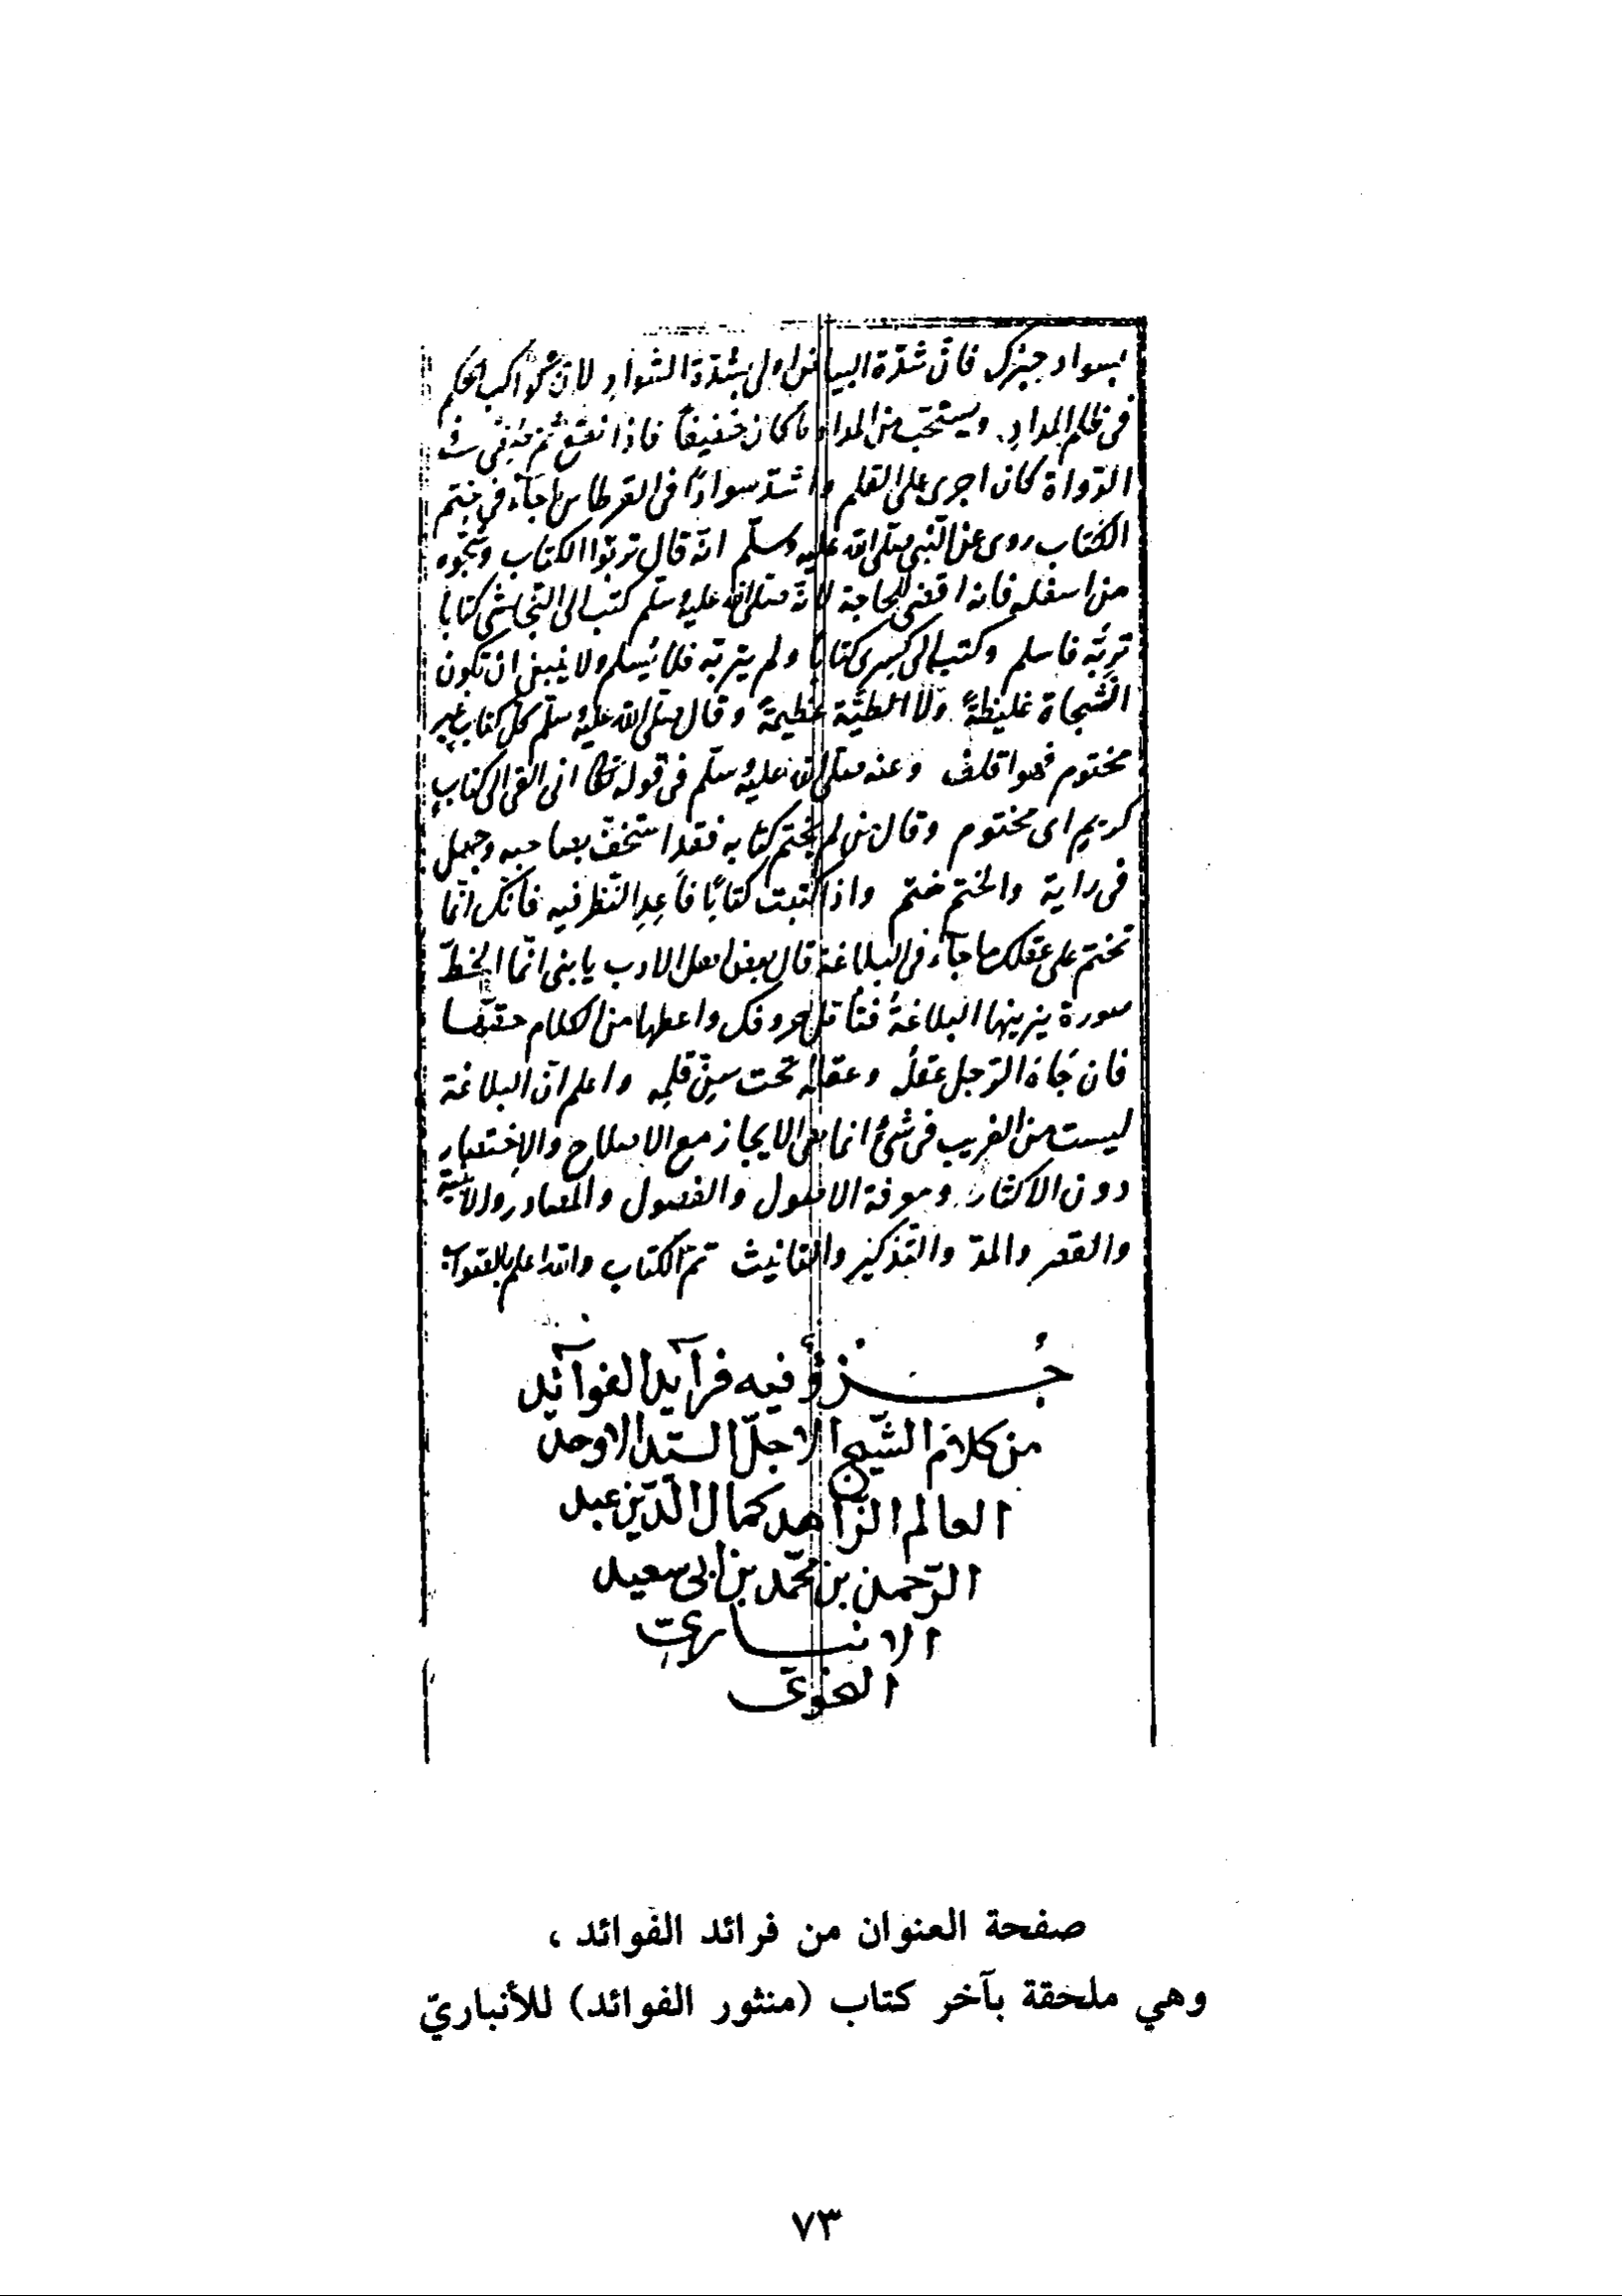 بسواد حبرك فان شدّة البياض اولى بشدّة السّواد لانّ كواكب الحكم
فى ظلم المدادِ. ويستحبّ من المداد ما كان خفيفًا فاذا نقع ثم
الدّواة كان اجرى على القلم واشدّ سوادًا فى القرطاس ما جآء فى ختم
الكتاب روى عن النّبى صلّى الله عليه وسلّم انّه قال تربّوا الكتاب
من اسفله فانه اقضى للحاجة لانّه صلّى الله عليه وسلّم كتب الى النّجاشى كتابا
تربّه فاسلم وكتب الى كسرى كتابًا ولم يتربه فلم يُسلم ولا ينبغى ان تكون
السّحاة غليظةً ولا الطيّة عظيمةً وقال صلّى الله عليه وسلّم كلّ كتاب غير
مختوم فهو اقلف وعنه صلّى الله عليه وسلّم فى قوله تعالى انى القى الى كتابٍ
كريمٍ اى مختوم وقال من لم يختم كتابه فقد استخفّ بصاحبه وجهل
فى رايه والختم ختم واذا كتبت كتابًا فأعِدِ النّظر فيه فانّك انّما
تختم على عقلك ما جآء فى البلاغة قال بعض اهل الادب يا بنى انّما الخطّ
صورة يزينها البلاغةُ فتأمّل حروفك واعطها من الكلام حقّها
فان الرّجل عقلُه وعقله تحت سِنّ قلمِه واعلم انّ البلاغة
ليست من الغريب فى شئ انما هى الايجاز مع الاصلاح والاختصار
دون الاكثار ومعرفة الاصول والفصول والمصادر والابنية
والقصر والمدّ والتذكير والتانيث تمّ الكتاب والله اعلم بالصّواب
جُزؤ فيه فرآيد الفوآئد
من كلام الشّيخ الاجلّ السّيد الاوحد
العالم الزّاهد كمال الدّين عبد
الرّحمن بن محمّد بن ابى سعيد
الانبارىّ
النحوىّ
صفحة العنوان من فرائد الفوائد ،
وهي ملحقة بآخر كتاب (منثور الفوائد) للأنباريّ
٧٣